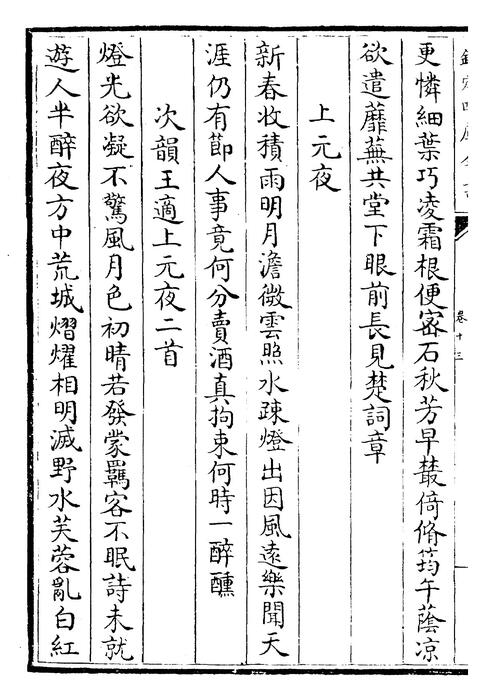 更憐細葉巧凌霜根便宻石秋芳早叢倚脩筠午蔭凉
欲遣蘼蕪共堂下眼前長見楚詞章
上元夜
新春收積雨明月澹微雲照水疎燈出因風逺樂聞天
涯仍有節人事竟何分賣酒真拘束何時一醉醺
次韻王適上元夜二首
燈光欲凝不驚風月色初晴若發蒙羈客不眠詩未就
遊人半醉夜方中荒城熠燿相明滅野水芙蓉亂白紅
卷十三